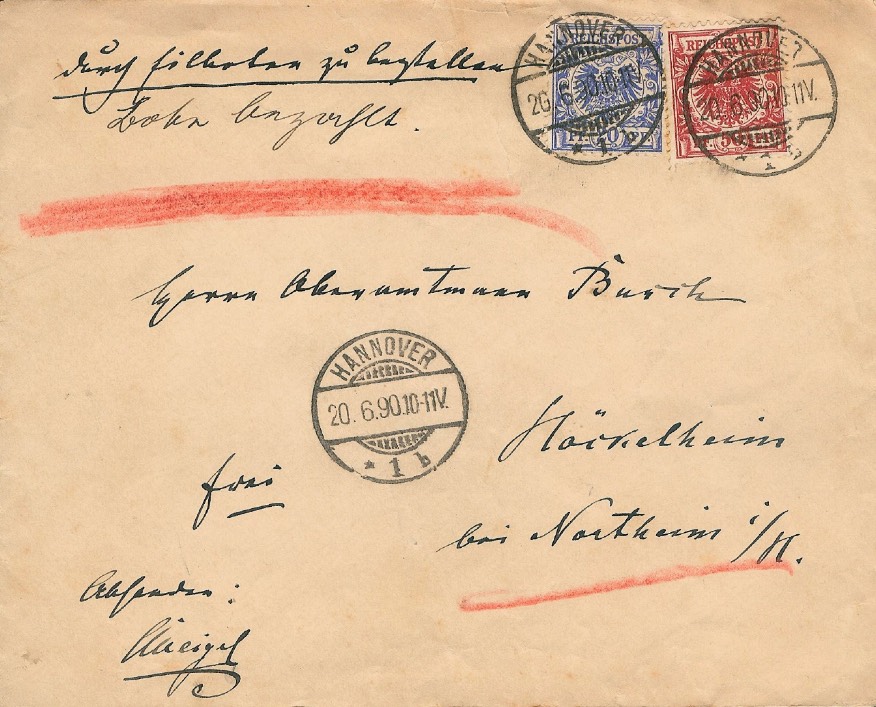 durch Eilboten zu bestellen
Bote bezahlt.
HANNOVER
20.6.90.10-11V.
* 1 b
REICHSPOST
PF. 20 PF.
HANNOVER
20.6.90.10-11V.
* 1 b
REICHSPOST
PF. 50 PF.
Herrn Oberamtmann Busch
HANNOVER
20.6.90.10-11V.
* 1 b
Höckelheim
frei
bei Northeim i/H.
Absender: